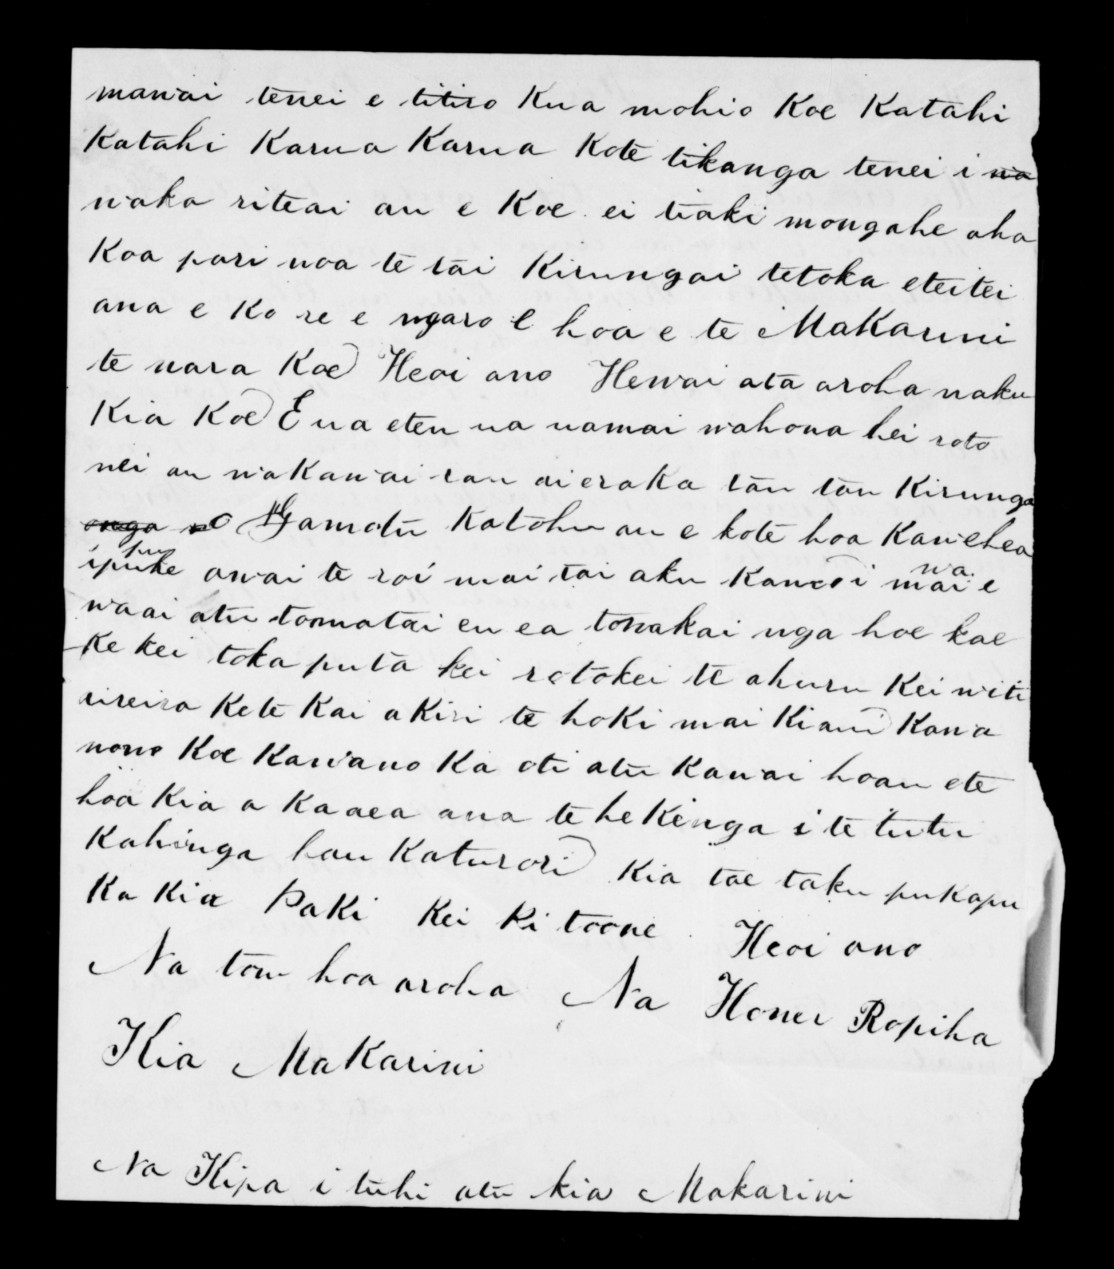 mawai tenei e titiro Kua mohio Koe Katahi
Katahi Karua Karua Kote tikanga tenei i wa
waka riteai au e Koe ei tiaki mongahe aha
Koa pari noa te tai Kirungai tetoka eteitei
ana e Ko re e ngaro E hoa e te MaKarini
te nara Koe Heoi ano Hewai ata aroha naku
Kia Koe E ua eten ua uamai wahoua hei roto
nei au waKawai rau ai eraKa tau tau Kirunga
onga o Ngamotu Katohu au e kote hoa Kawehea
ipuke pu awai te roi mai tai aku Kamo i mai wa e
waai atu tomatai eu ea towakai nga hoe kae
Ke kei toka puta kei rotokei te ahuru Kei witi
rireira Kete Kai aKiri te hoKi mai Kiau Kawa
nono Koe Kawano Ka oti atu Kawai hoau ete
hoa Kia a Kaaea ana te heKenga i te tutu
Kahinga hau Katurori Kia tae taku puKapu
Ka Kia PaKi Kei Ki toone. Heoi ano
Na tou hoa aroha Na Honei Ropiha
Kia MaKarini
Na Kipa i tuhi atu kia Makarini